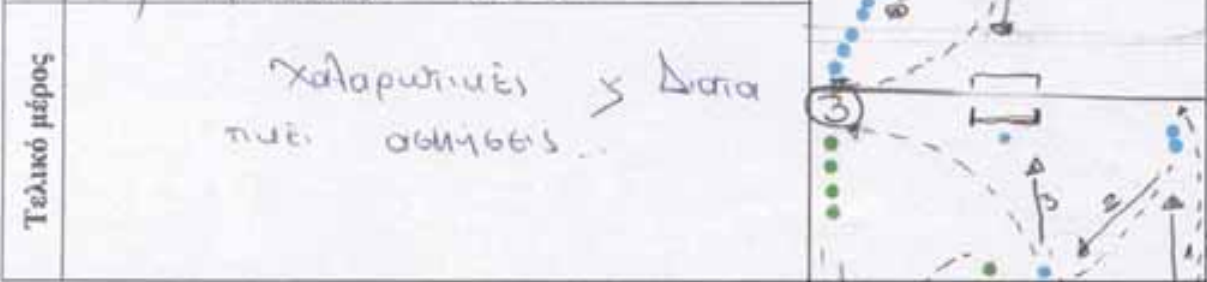 Τελικό μέρος
Χαλαρωτικές γ Διατα
τικές ασκήσεις...
8
3
3 2 1